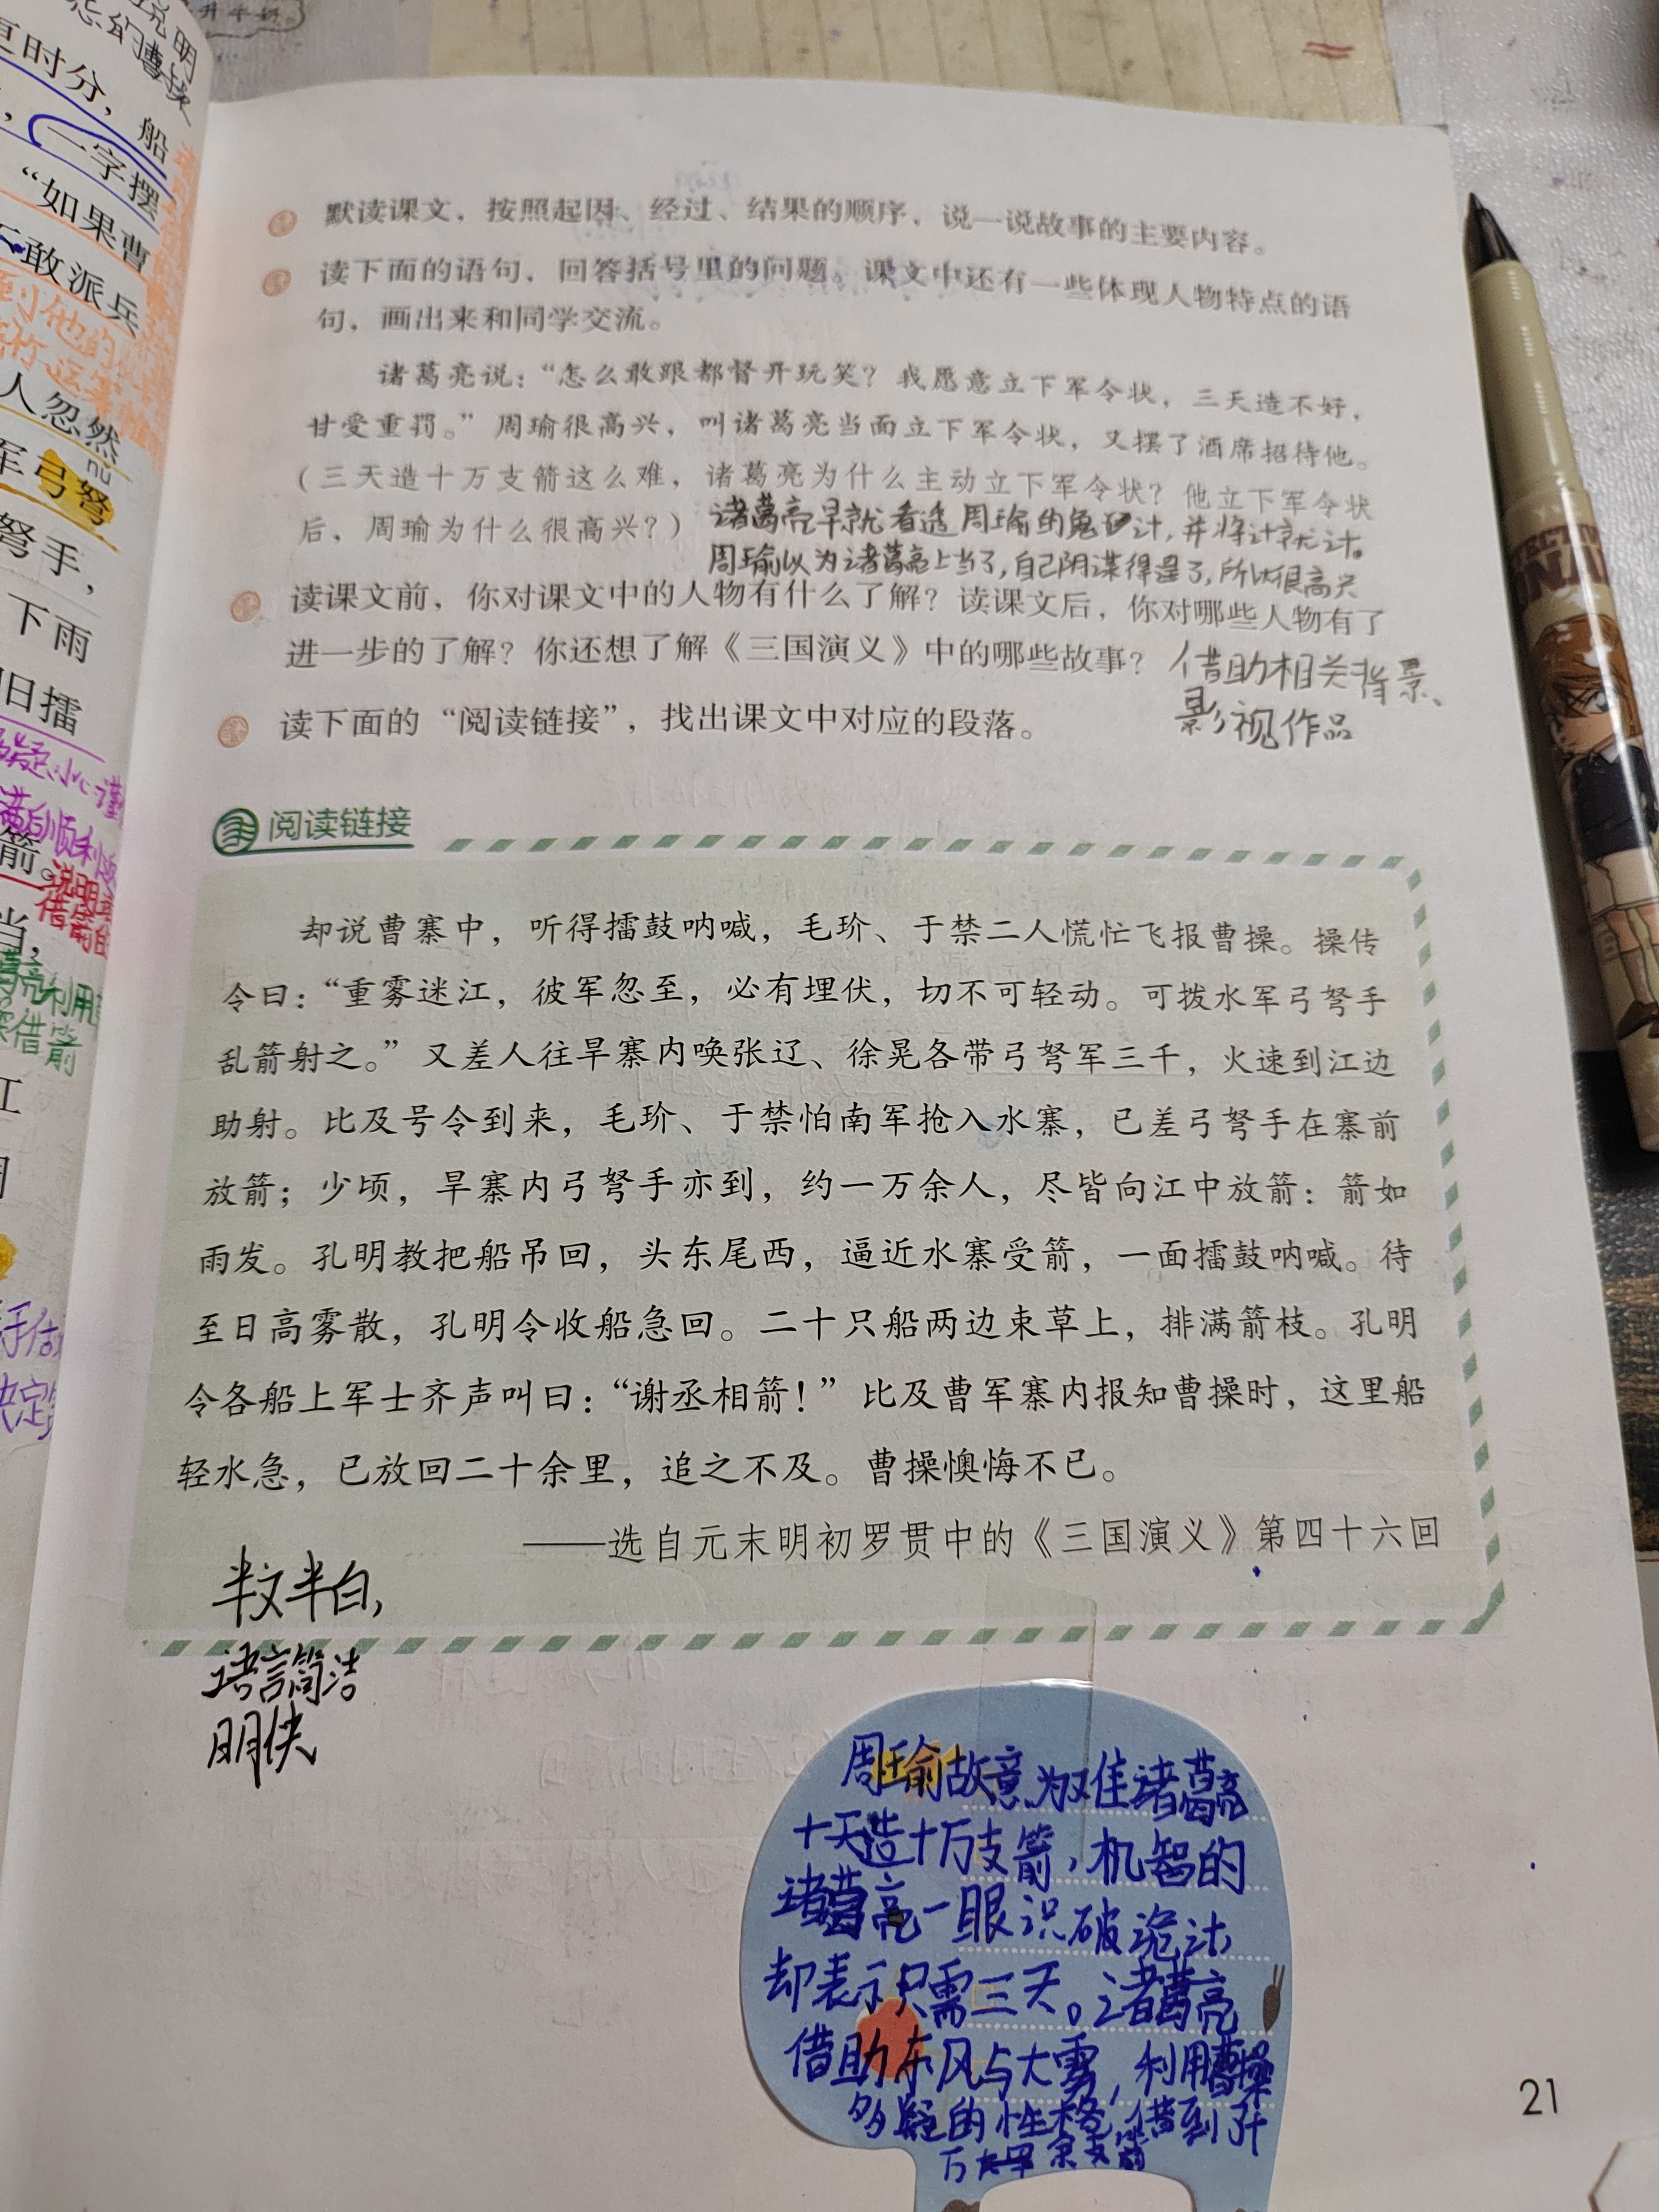 更时分，船
一字摆
“如果曹
不敢派兵
人忽然
nǔ
军弓弩
弩手，
下雨
旧擂
箭。
当，
江
默读课文，按照起因、经过、结果的顺序，说一说故事的主要内容。
读下面的语句，回答括号里的问题。课文中还有一些体现人物特点的语
句，画出来和同学交流。
诸葛亮说：“怎么敢跟都督开玩笑？我愿意立下军令状，三天造不好，
甘受重罚。”周瑜很高兴，叫诸葛亮当面立下军令状，又摆了酒席招待他。
（三天造十万支箭这么难，诸葛亮为什么主动立下军令状？他立下军令状
后，周瑜为什么很高兴？）
诸葛亮早就看透周瑜的鬼计，并将计就计。
周瑜以为诸葛亮上当了，自己阴谋得逞了，所以很高兴
读课文前，你对课文中的人物有什么了解？读课文后，你对哪些人物有了
进一步的了解？你还想了解《三国演义》中的哪些故事？
借助相关背景、
影视作品
读下面的“阅读链接”，找出课文中对应的段落。
阅读链接
却说曹寨中，听得擂鼓呐喊，毛玠、于禁二人慌忙飞报曹操。操传
令曰：“重雾迷江，彼军忽至，必有埋伏，切不可轻动。可拨水军弓弩手
乱箭射之。”又差人往旱寨内唤张辽、徐晃各带弓弩军三千，火速到江边
助射。比及号令到来，毛玠、于禁怕南军抢入水寨，已差弓弩手在寨前
放箭；少顷，旱寨内弓弩手亦到，约一万余人，尽皆向江中放箭：箭如
雨发。孔明教把船吊回，头东尾西，逼近水寨受箭，一面擂鼓呐喊。待
至日高雾散，孔明令收船急回。二十只船两边束草上，排满箭枝。孔明
令各船上军士齐声叫曰：“谢丞相箭！”比及曹军寨内报知曹操时，这里船
轻水急，已放回二十余里，追之不及。曹操懊悔不已。
——选自元末明初罗贯中的《三国演义》第四十六回
半文半白，
语言简洁
明快
周瑜故意为难诸葛亮
十天造十万支箭，机智的
诸葛亮一眼识破诡计
却表示只需三天。诸葛亮
借助东风与大雾，利用曹操
多疑的性格，借到了十
万余支箭
21